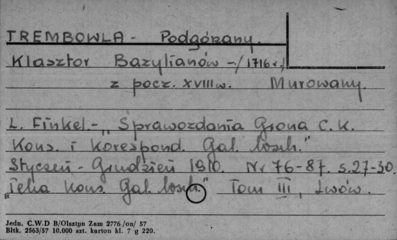 TREMBOWLA - Podgórzany.
Klasztor Bazylianów -/1716r./
z pocz. XVIII w. Murowany.
L. Finkel.- "Sprawozdania Grona C.K.
Kons. i Korespond. Gal. Wsch."
Styczeń - Grudzień 1910. Nr 76-87. s. 27-30.
"Teka Kons. Gal. Wsch." Tom III, Lwów.
Jedn. C.W.D B/Olsztyn Zam 2776/on/ 57
Bltk. 2563/57 10.000 szt. karton kl. 7 g 220.